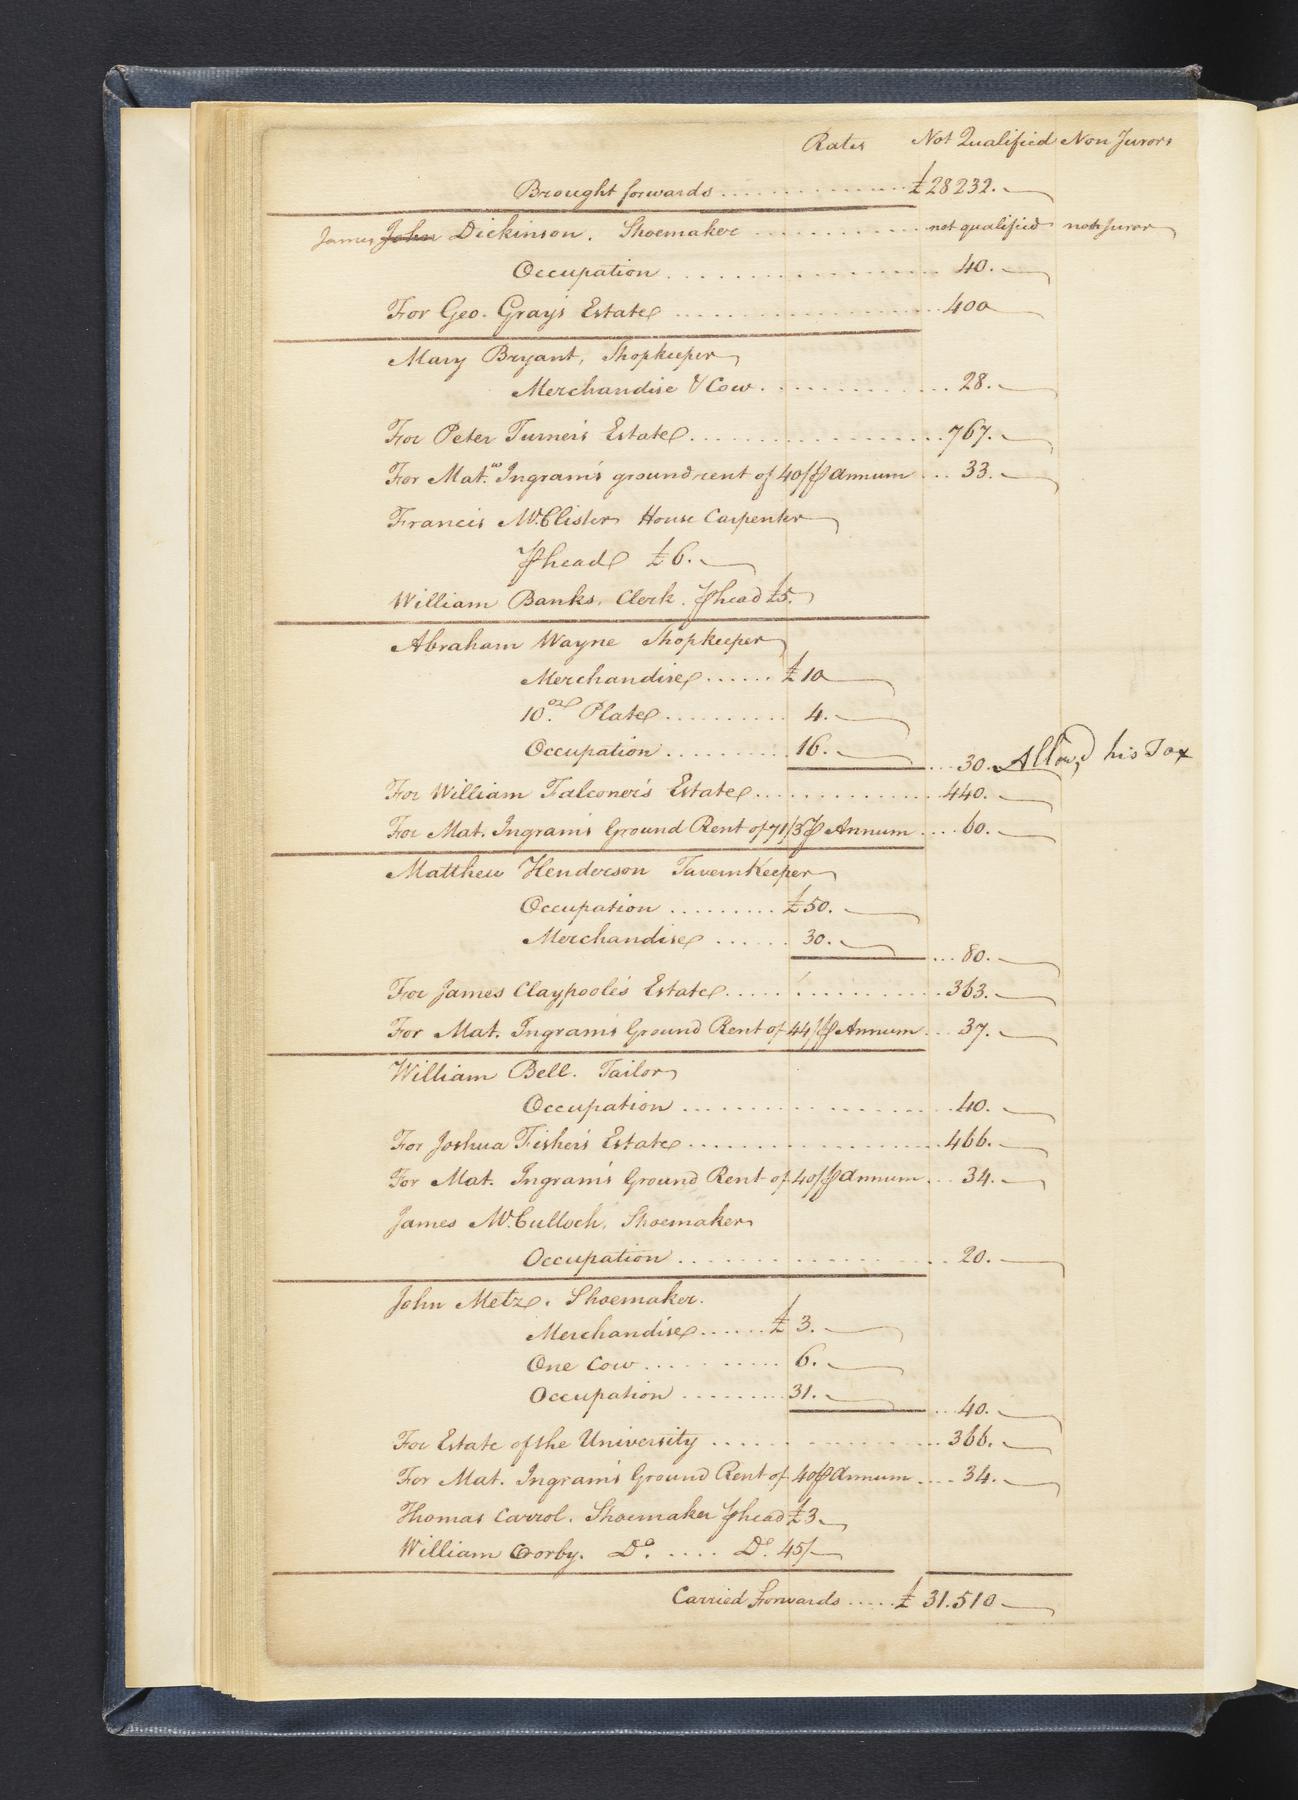 Rates Not Qualified Non Jurors
Brought forwards ................ £28232.
James John Dickinson. Shoemaker ............ not qualified non Juror
Occupation .................. 40.
For Geo. Gray's Estate .................. 400
Mary Bryant, Shopkeeper
Merchandise & Cow ............. 28.
For Peter Turner's Estate ................. 767.
For Mat.w Ingram's ground rent of 40/ ⅌ Annum ... 33.
Francis McClister House Carpenter
⅌ head £6.
William Banks. Clerk. ⅌ head £5.
Abraham Wayne Shopkeeper
Merchandise ...... £10
10 oz. Plate .......... 4.
Occupation .......... 16.
... 30. Allow'd his Tax
For William Falconer's Estate ............. 440.
For Mat. Ingram's Ground Rent of 71/3 ⅌ Annum .... 60.
Matthew Henderson Tavern Keeper
Occupation ......... £50.
Merchandise ...... 30.
... 80.
For James Claypoole's Estate ............... 363.
For Mat. Ingram's Ground Rent of 44/ ⅌ Annum ... 37.
William Bell. Tailor
Occupation .................. 40.
For Joshua Fisher's Estate .................. 466.
For Mat. Ingram's Ground Rent of 40/ ⅌ Annum ... 34.
James McCulloch. Shoemaker
Occupation .................. 20.
John Metz. Shoemaker.
Merchandise ...... £ 3.
One Cow ........... 6.
Occupation ......... 31.
... 40.
For Estate of the University ............... 366.
For Mat. Ingram's Ground Rent of 40 ⅌ Annum .... 34.
Thomas Carrol. Shoemaker ⅌ head £3.
William Corby. Do. .... Do. 45/
Carried Forwards ..... £ 31.510